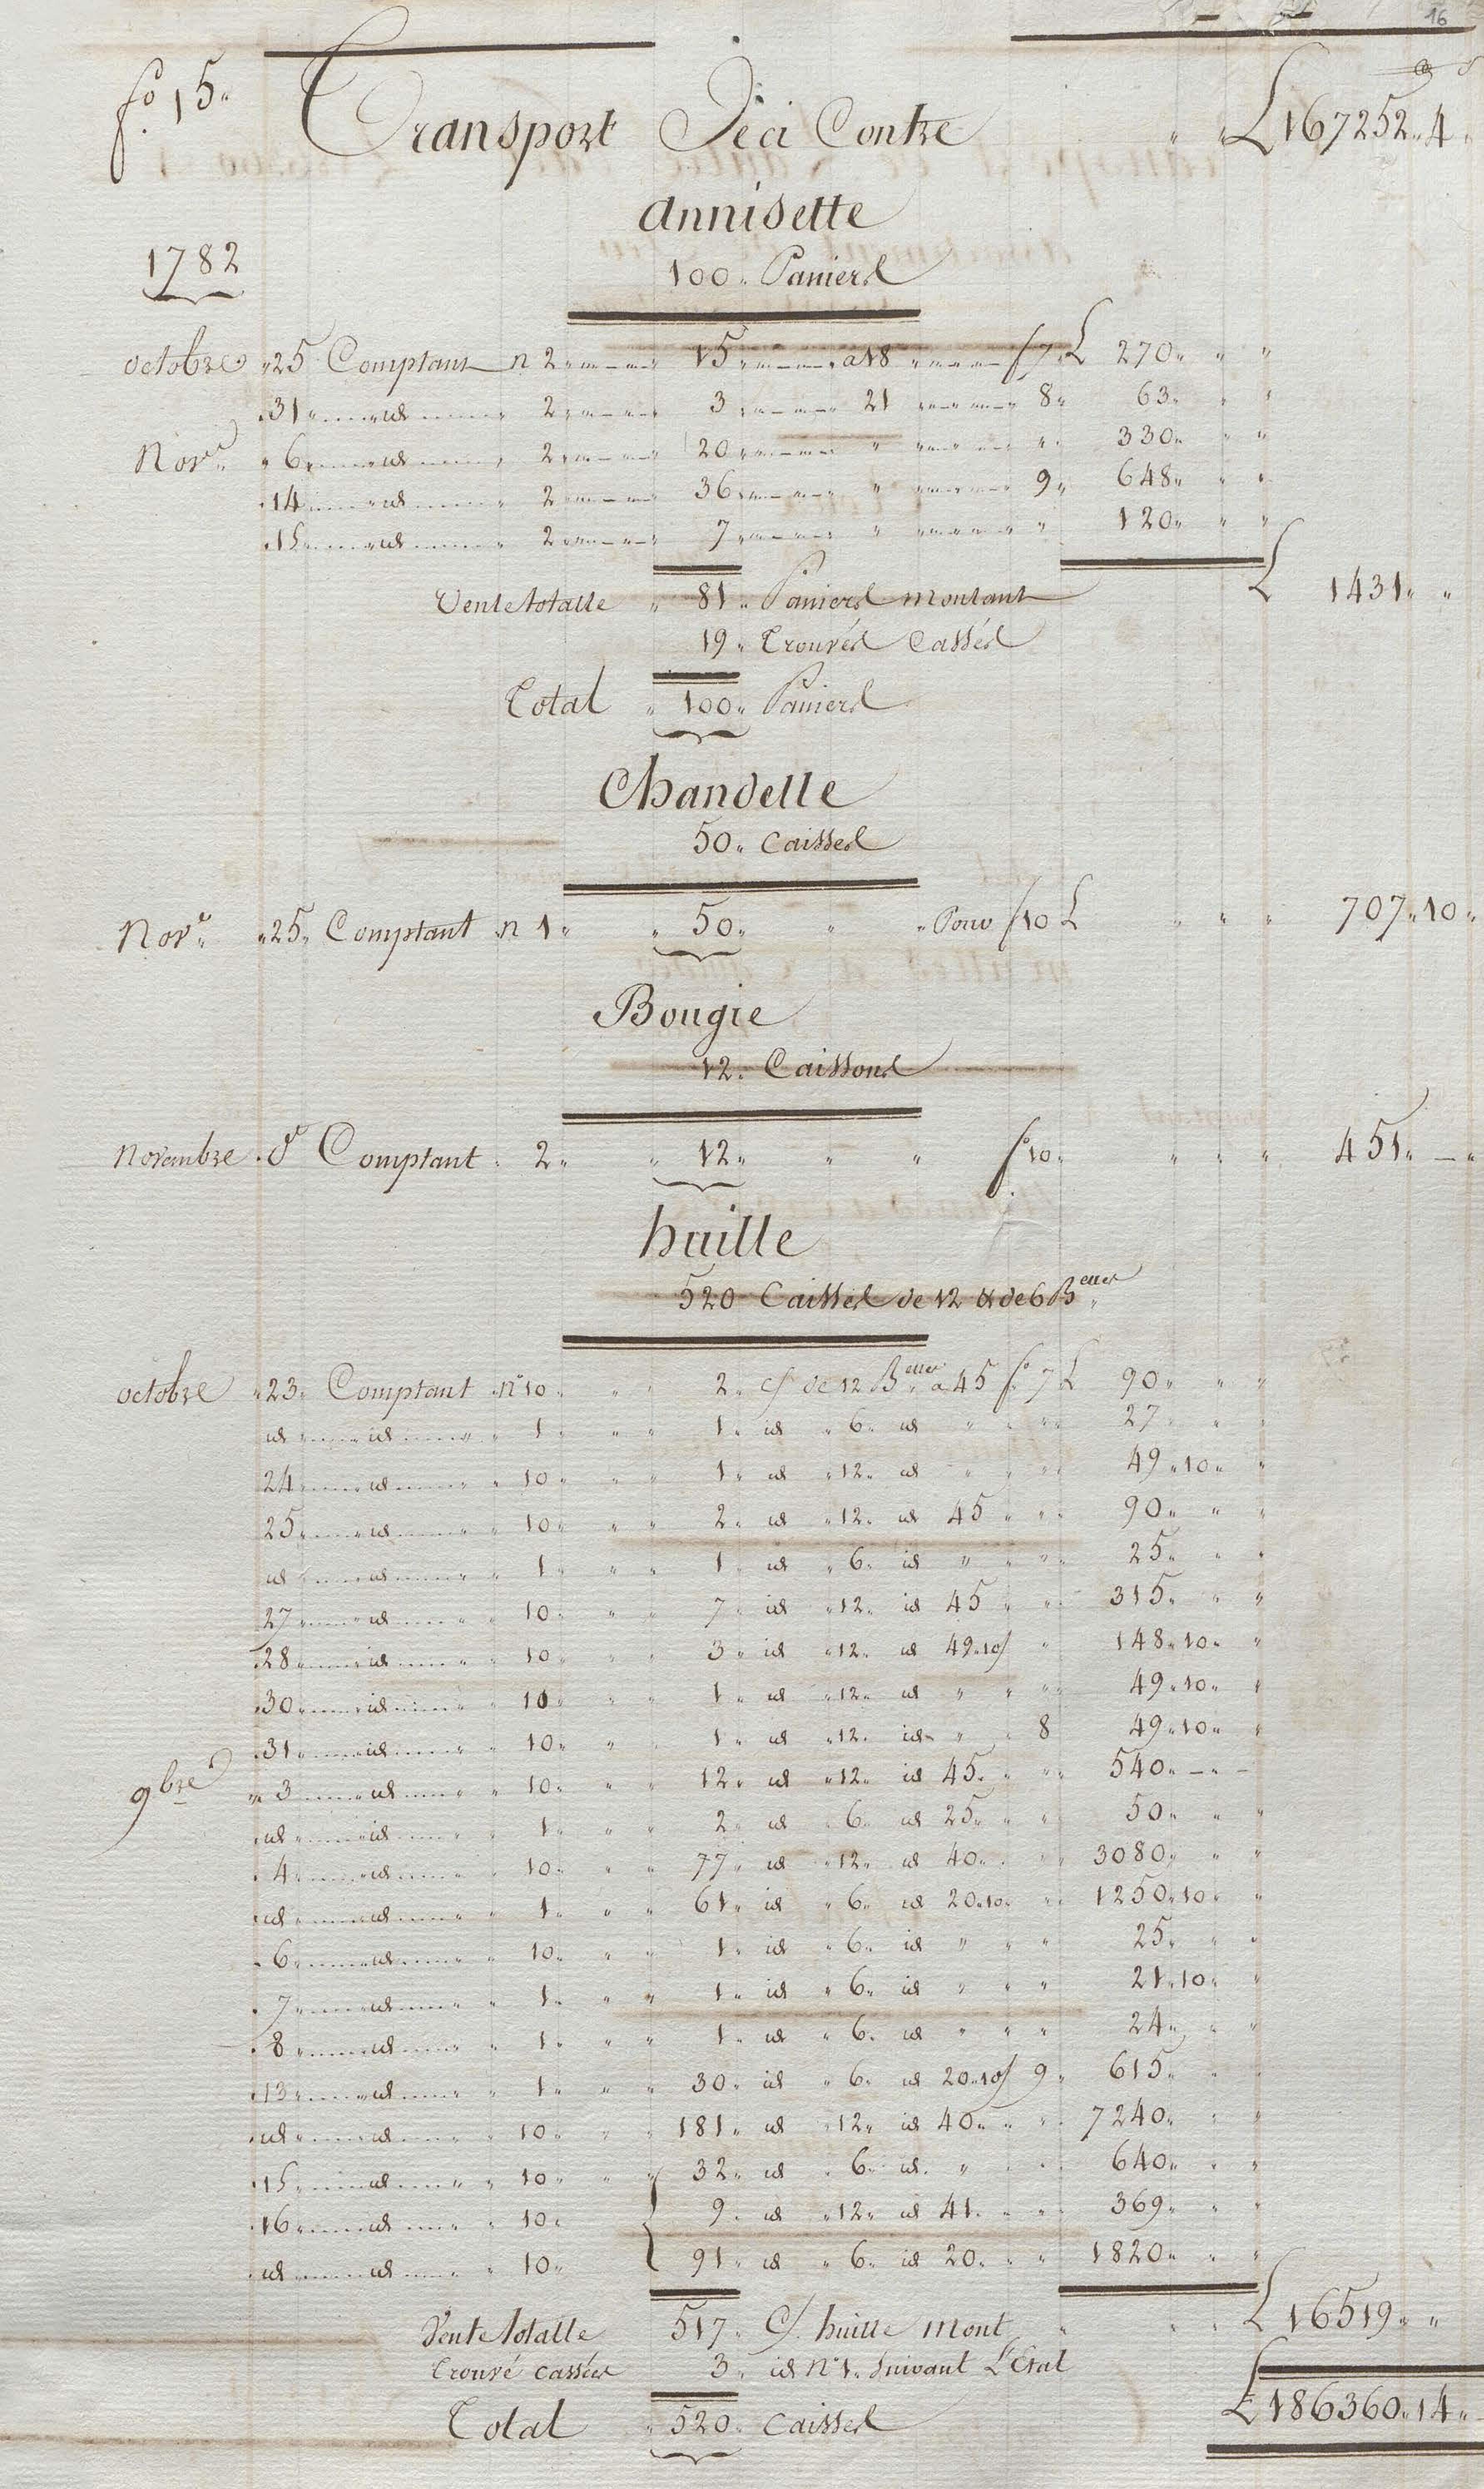 16
f.º 15. Transport Deci Contre £ 167252. 4.
annisette
1782
100. Paniers
octobre . 25 Comptant n 2 15 a 18 f 7. £ 270.
. 31 id 2 3 21 8. 63.
Nov.re . 6 id 2 20 " " 330.
. 14 id 2 36 " 9. 648.
. 15 id 2 7 " " 120.
Vente totalle . 81. Paniers montant £ 1431.
19. Trouvés Cassés
Total . 100. Paniers
Chandelle
50. Caisses
Nov.e . 25. Comptant n 1. . 50. " . Pour f 10 £ 707. 10.
Bougie
12. Caissons
Novembre . 8 Comptant . 2. . 12. " " f.º 10. 451. —
huille
520 Caisses de 12 & de 6 B.elles
octobre . 23. Comptant n.º 10. 2. C/ de 12 B.elles a 45 f.º 7 £ 90.
id id 1. 1. id . 6. id " 27.
24 id 10. 1. id . 12. id " 49. 10.
25 id 10. 2. id . 12. id 45 90.
id id 1. 1. id . 6. id " 25.
27 id 10. 7. id . 12. id 45 315.
. 28 id 10. 3. id . 12. id 49. 10/ 148. 10.
. 30 id 10. 1. id . 12. id " 49. 10.
. 31 id 10. 1. id . 12. id " 8 49. 10.
9bre . 3 id 10. 12. id . 12. id 45. 540. — . —
. id id 1. 2. id . 6. id 25. 50.
. 4 id 10. 77. id . 12. id 40. 3080.
. id id 1. 61. id . 6. id 20. 10. 1250. 10.
. 6 id 10. 1. id . 6. id " 25.
. 7 id 1. 1. id . 6. id " 21. 10.
. 8 id 1. 1. id . 6. id " 24.
. 13 id 1. 30. id . 6. id 20. 10/ 9. 615.
. id id 10. 181. id . 12. id 40. 7240.
. 15 id 10. 32. id . 6. id. " 640.
. 16 id 10. { 9. id . 12. id 41. 369.
. id id 10. 91. id . 6. id 20. 1820.
Vente totalle 517. C/. huille mont £ 16519.
Trouvé cassées 3. id N.º 1. Suivant L'Etat
Total . 520. Caisses £ 186360. 14.